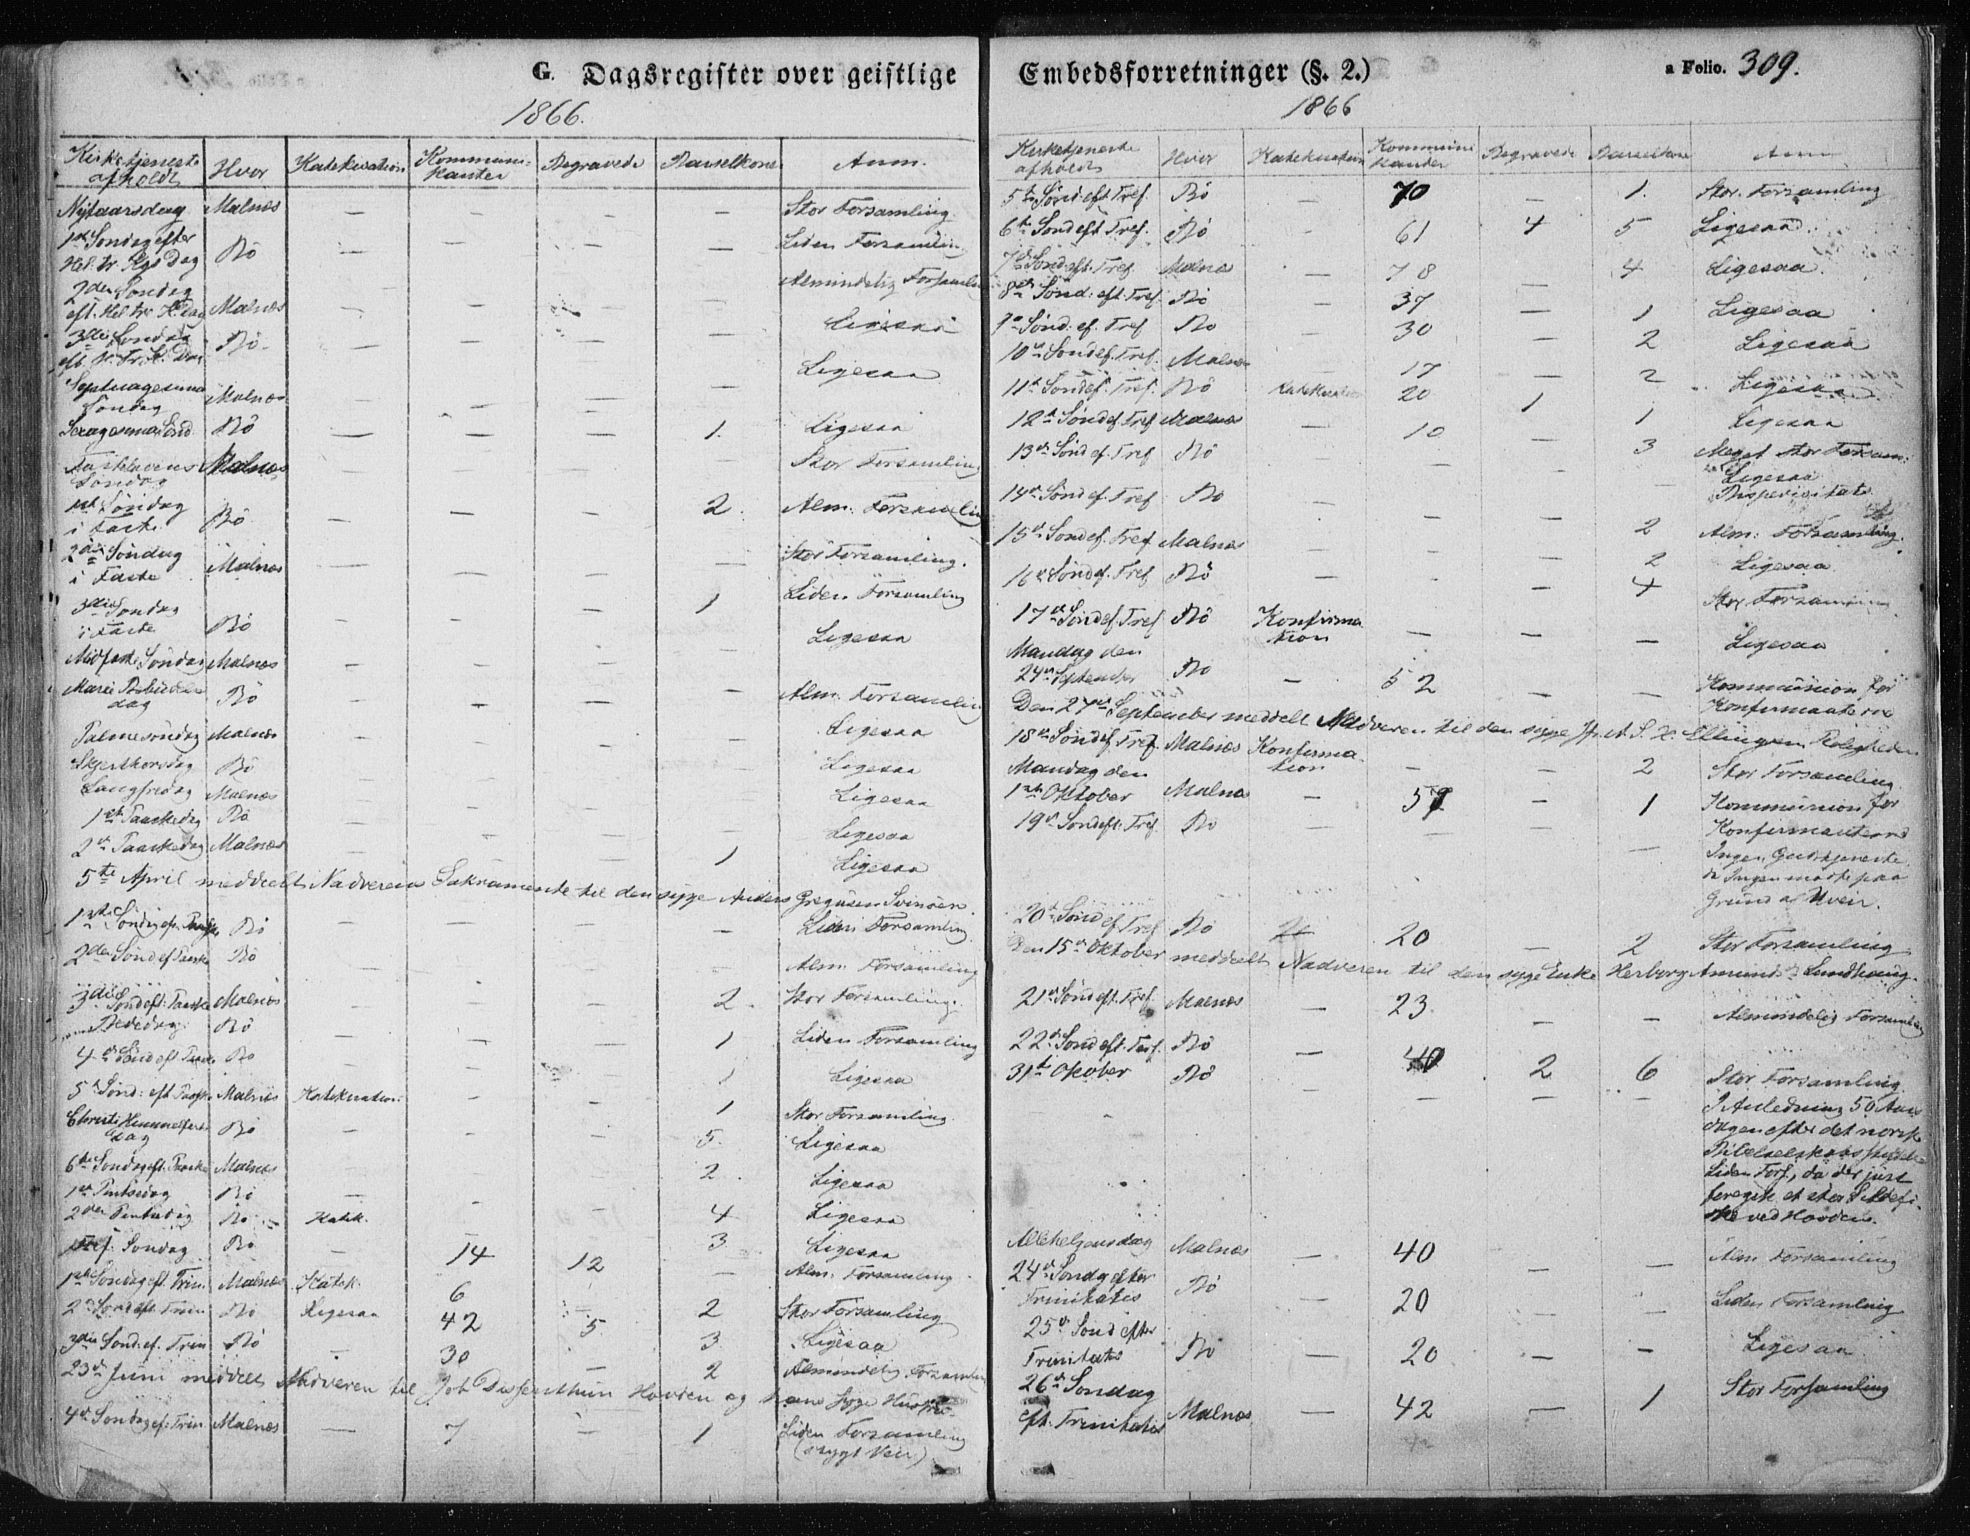 G. Dagsregister over geistlige
1866.
Kirketjeneste afholdt | Hvor | Katekisation | Kommunikanter | Begravede | Barselkone | Anm.
Nytaarsdag | Malnæs | — | — | — | — | Stor Forsamling.
1ste Søndag efter Hel. tr. Kgs Dag | Bö | — | — | — | — | Liden Forsamling
2den Søndag eft. Hel. tr. K. Dag | Malnæs | — | — | — | — | Almindelig Forsamling
3die Søndag eft. H. Tr. K. Dag | Bö | — | — | — | — | Ligesaa
Septuagesima Søndag | Malnæs | — | — | — | — | Ligesaa
Sexagesima Sönd. | Bö | — | — | — | 1. | Ligesaa
Fastelavens Søndag | Malnæs | — | — | — | — | Stor Forsamling
1ste Søndag i Faste | Bö | — | — | — | 2. | Alm. Forsamling
2den Søndag i Faste | Malnæs | — | — | — | — | Stor Forsamling.
3die Søndag i Faste | Bö | — | — | — | 1 | Liden Forsamling
Midfaste Søndag | Malnæs | — | — | — | — | Ligesaa
Mariæ Bebudelsesdag | Bö | — | — | — | — | Alm. Forsamling
Palmesøndag | Malnæs | — | — | — | — | Ligesaa
Skjertorsdag | Bö | — | — | — | — | Ligesaa
Langfredag | Malnæs | — | — | — | — | Ligesaa
1ste Paaskedag | Bö | — | — | — | — | Ligesaa
2den Paaskedag | Malnæs | — | — | — | 1 | Ligesaa
5te April meddeelt Nadverens Sakramente til den syge Anders Gregusen Svinöen.
1ste Søndag ef. Paaske | Bö | — | — | — | — | Liden Forsamling
2den Sönd ef Paaske | Bö | — | — | — | — | Alm. Forsamling
3die Sönd eft. Paaske | Malnæs | — | — | — | 2. | Stor Forsamling.
Bededag | Bö | — | — | — | 1 | Liden Forsamling
4de Sönd eft. Paaske | Bö | — | — | — | 1 | Ligesaa
5te Sönd. eft Paaske | Malnæs | Katekisation. | — | — | 1 | Stor Forsamling.
Christi Himmelfartsdag | Bö | — | — | — | 5. | Ligesaa
6te Søndag eft. Paaske | Malnæs | — | — | — | 2. | Ligesaa
1ste Pintsedag | Bö | — | — | — | 4 | Ligesaa
2den Pintsedag | Bö | Katek. | — | — | 3 | Ligesaa
Tref. Søndag | Bö | — | 14 | 12 | — | Alm. Forsamling
1ste Søndag eft. Trin. | Malnæs | Katek. | 6 | — | 2 | Stor Forsamling
2den Sönd eft Trin | Bö | Ligesaa | 42 | 5 | 3 | Ligesaa
3die Sönd. ef. Trin | Bö | — | 30 | — | 2 | Almindelig Forsamling
23de Juni meddelt Nadveren til Joh. Hovden og hans syge Hustru.
4de Søndag ef. Trin | Malnæs | — | 7 | — | 1 | Liden Forsamling (stygt Veir)
Embedsforretninger (§. 2.)
a Folio. 309.
1866
Kirketjeneste afholdt | Hvor | Katekisation | Kommunikanter | Begravede | Barselkone | Anm
5te Sönd. eft Tref. | Bö | — | 70 | — | 1. | Stor. Forsamling
6te Sönd eft Tref. | Bö | — | 61 | 4 | 5 | Ligesaa
7de Sönd. eft. Tref | Malnæs | — | 78 | — | 4 | Ligesaa.
8de Sönd. eft. Tref. | Bö | — | 37 | — | 1 | Ligesaa
9de Sönd. ef. Tref | Bö | — | 30 | — | 2 | Ligesaa
10de Sönd ef. Tref. | Malnæs | — | 17 | — | 2 | Ligesaa
11te Sönd ef. Tref. | Bö | Katekisation | 20 | 1 | 1 | Ligesaa
12te Sönd ef Tref | Malnæs | — | 10 | — | 3 | Meget stor Forsam:
13de Sönd ef. Tref | Bö | — | — | — | — | Ligesaa Bispevisitats
14de Sönd ef. Tref | Bö | — | — | — | 2 | Alm. Forsamling.
15de Sönd ef. Tref | Malnæs | — | — | — | 2 | Ligesaa
16de Sönd ef. Tref | Bö | — | — | — | 4 | Stor Forsamling
17de Sönd ef. Tref | Bö | Konfirmation | — | — | — | Ligesaa
Mandag den 24de September | Bö | — | 52 | — | — | Kommunion for Konfirmanterne
Den 27de September meddelt Nadveren til den syge A. S. H. Ellingsen Roligheden
18de Sönd ef Tref. | Malnæs | Konfirmation | — | — | 2 | Stor Forsamling
Mandag den 1ste Oktober | Malnæs | — | 57 | — | 1 | Kommunion for Konfirmanterne
19de Sönd eft. Tref. | Bö | — | — | — | — | Ingen Gudstjeneste, da Ingen mødte paa Grund af Uveir.
20de Sönd ef Tref | Bö | — | 20 | — | 2 | Stor Forsamling
Den 15de Oktober meddeelt Nadveren til den syge Enke Herborg Amundsd. Sundhaug.
21de Sönd eft. Tref | Malnæs | — | 23 | — | — | Almindelig Forsamling
22de Sönd eft. Tref. | Bö | — | 40 | 2 | 6 | Stor Forsamling.
31te Oktober | Bö | — | — | — | — | I Anledning 50 Aars dagen efter det norske Bibelselskabs Stiftelse Liden Fors., da der just foregik et stor Sildefiske ved Hovden.
Allehelgensdag | Malnæs | — | 40 | — | — | Alm Forsamling
24de Søndg efter Trinitatis | Bö | — | 20 | — | — | Liden Forsamling
25de Sönd efter Trinitatis | Bö | — | 20 | — | — | Ligesaa
26de Søndag eft. Trinitatis | Malnæs | — | 42 | — | 1 | Stor Forsamling